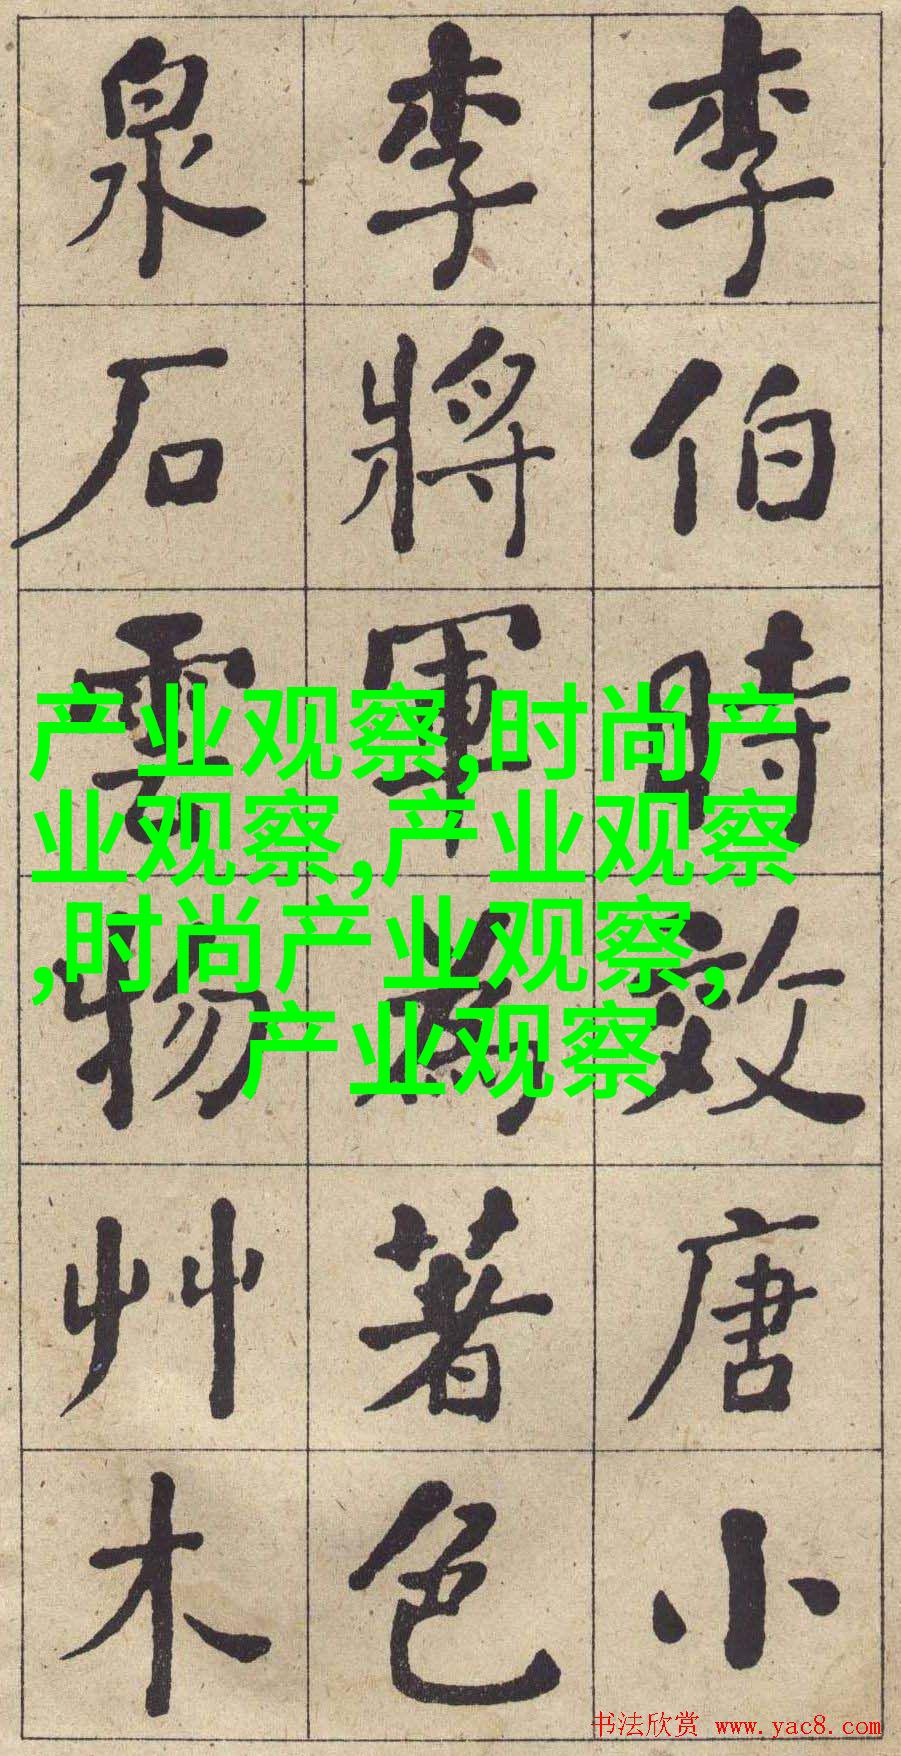 李伯時效唐小
李將軍為著色
泉石雲物艸木
产业观察,时尚产
业观察,产业观察
,时尚产业观察,
产业观察
书法欣赏 www.yac8.com